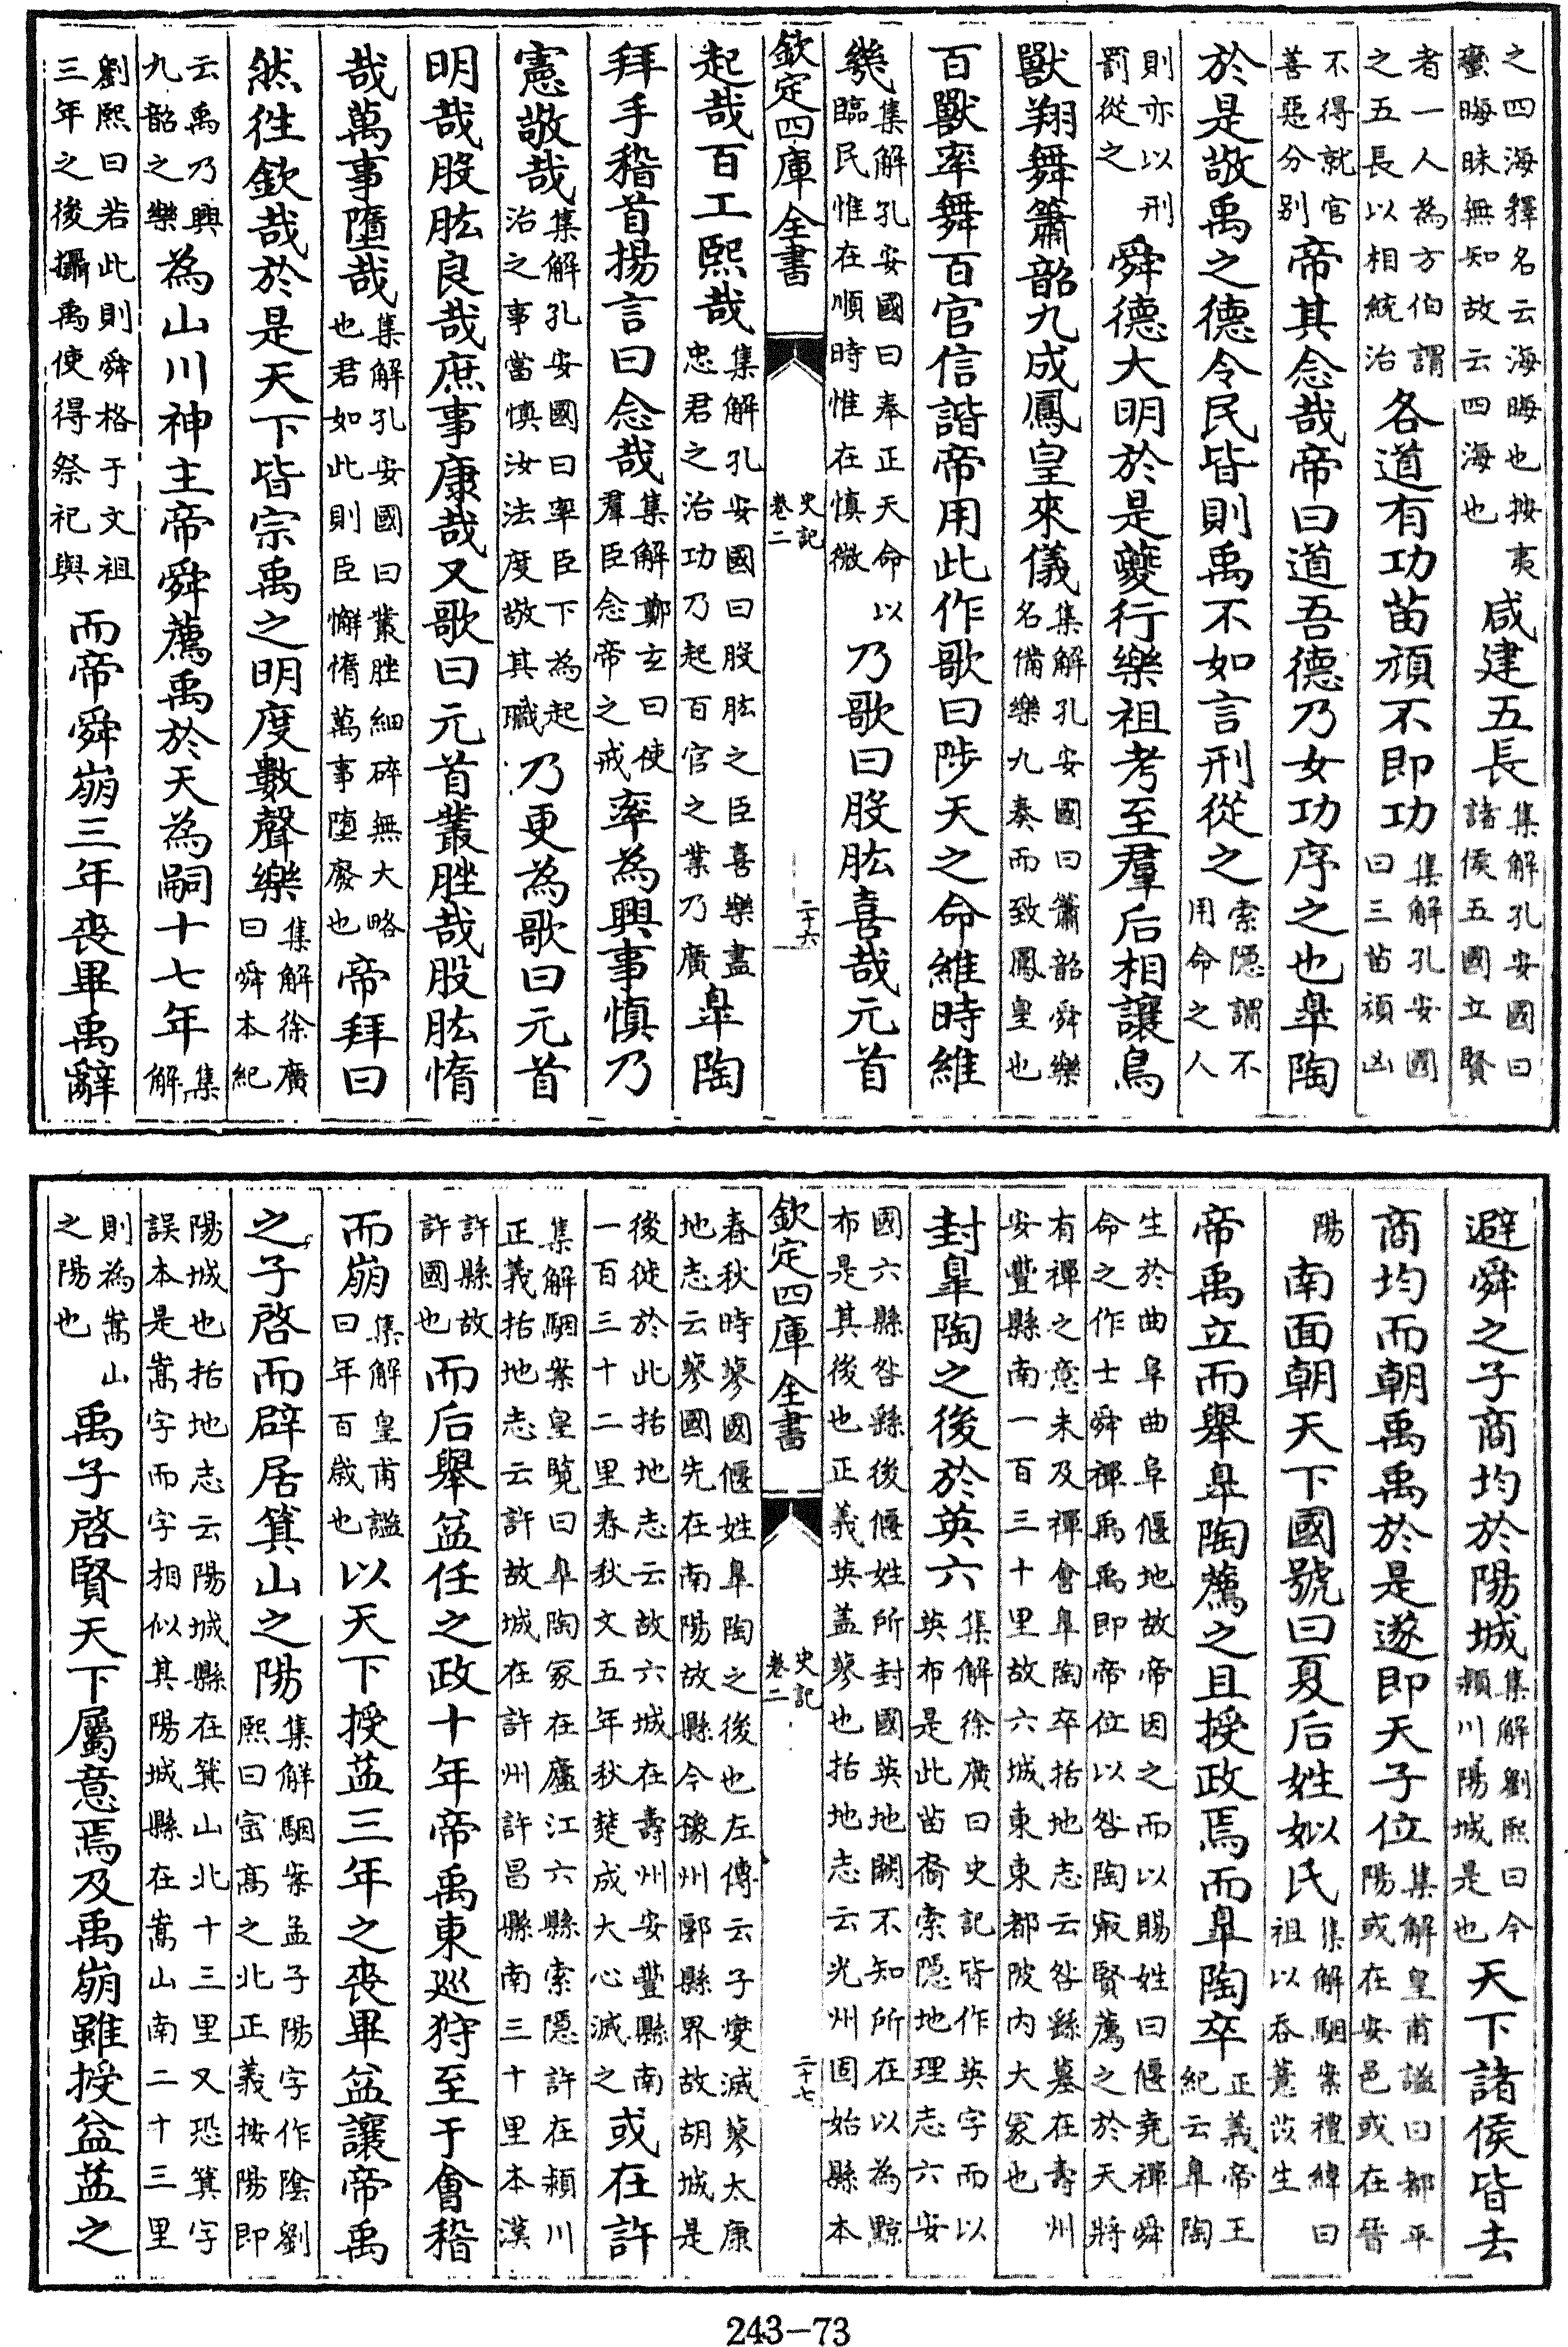 之四海釋名云海晦也按夷
蠻晦昧無知故云四海也
咸建五長
集解孔安國曰
諸侯五國立賢
者一人為方伯謂
之五長以相統治
各道有功苗頑不即功
集解孔安國
曰三苗頑凶
不得就官
善惡分别
帝其念哉帝曰道吾德乃女功序之也臯陶
於是敬禹之德令民皆則禹不如言刑從之
索隱謂不
用命之人
則亦以刑
罰從之
舜德大明於是夔行樂祖考至羣后相讓鳥
獸翔舞簫韶九成鳳皇來儀
集解孔安國曰簫韶舜樂
名備樂九奏而致鳳皇也
百獸率舞百官信諧帝用此作歌曰陟天之命維時維
幾
集解孔安國曰奉正天命以
臨民惟在順時惟在慎微
乃歌曰股肱喜哉元首
欽定四庫全書
史記
卷二
二十六
起哉百工熙哉
集解孔安國曰股肱之臣喜樂盡
忠君之治功乃起百官之業乃廣
臯陶
拜手稽首揚言曰念哉
集解鄭玄曰使
羣臣念帝之戒
率為興事慎乃
憲敬哉
集解孔安國曰率臣下為起
治之事當慎汝法度敬其職
乃更為歌曰元首
明哉股肱良哉庶事康哉又歌曰元首叢脞哉股肱惰
哉萬事墮哉
集解孔安國曰叢脞細碎無大略
也君如此則臣懈惰萬事墮廢也
帝拜曰
然徃欽哉於是天下皆宗禹之明度數聲樂
集解徐廣
曰舜本紀
云禹乃興
九韶之樂
為山川神主帝舜薦禹於天為嗣十七年
集
解
劉熙曰若此則舜格于文祖
三年之後攝禹使得祭祀與
而帝舜崩三年喪畢禹辭
避舜之子商均於陽城
集解劉熙曰今
潁川陽城是也
天下諸侯皆去
商均而朝禹禹於是遂即天子位
集解皇甫謐曰都平
陽或在安邑或在晉
陽
南面朝天下國號曰夏后姓姒氏
集解駰案禮緯曰
祖以吞薏苡生
帝禹立而舉臯陶薦之且授政焉而臯陶卒
正義帝王
紀云臯陶
生於曲阜曲阜偃地故帝因之而以賜姓曰偃堯禪舜
命之作士舜禪禹禹即帝位以咎陶㝡賢薦之於天將
有禪之意未及禪會臯陶卒括地志云咎繇墓在壽州
安豐縣南一百三十里故六城東東都陂内大冢也
封臯陶之後於英六
集解徐廣曰史記皆作英字而以
英布是此苗裔索隱地理志六安
國六縣咎繇後偃姓所封國英地闕不知所在以為黥
布是其後也正義英蓋蓼也括地志云光州固始縣本
欽定四庫全書
史記
卷二
二十七
春秋時蓼國偃姓臯陶之後也左傳云子燮滅蓼太康
地志云蓼國先在南陽故縣今豫州郾縣界故胡城是
後徙於此括地志云故六城在壽州安豐縣南
一百三十二里春秋文五年秋楚成大心滅之
或在許
集解駰案皇覽曰臯陶冢在廬江六縣索隱許在潁川
正義括地志云許故城在許州許昌縣南三十里本漢
許縣故
許國也
而后舉益任之政十年帝禹東巡狩至于會稽
而崩
集解皇甫謐
曰年百歲也
以天下授益三年之喪畢益讓帝禹
之子啓而辟居箕山之陽
集解駰案孟子陽字作陰劉
熙曰崈高之北正義按陽即
陽城也括地志云陽城縣在箕山北十三里又恐箕字
誤本是嵩字而字相似其陽城縣在嵩山南二十三里
則為嵩山
之陽也
禹子啓賢天下屬意焉及禹崩雖授益益之
243-73